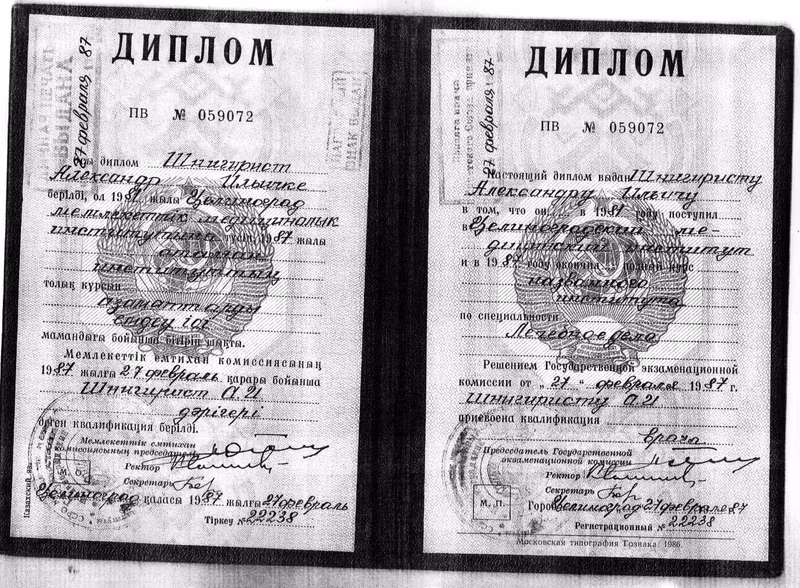 ДИПЛОМ
ПВ № 059072
27 февраля 87
диплом Шнигирист
Александр Ильичке
берілді, ол 1981 жылы Целиноград
мемлекеттік медициналық
институтына түсіп, 1987 жылы
аталған
институттың
толық курсын
азаматтарды
емдеу ісі
мамандағы бойынша бітіріп шықты.
Мемлекеттік емтихан комиссиясының
1987 жылғы 27 февраль қарары бойынша
Шнигирист А.И
дәрігері
деген квалификация берілді.
Мемлекеттік емтихан
комиссиясының председателі
Ректор
Секретарь
М. О.
Целиноград қаласы 1987 жылғы 27 февраль
Тіркеу № 22238
ДИПЛОМ
ПВ № 059072
27 февраля 87
Настоящий диплом выдан Шнигиристу
Александру Ильичу
в том, что он в 1981 году поступил
в Целиноградский ме-
дицинский институт
и в 1987 году окончил полный курс
названного
института
по специальности
Лечебное дело
Решением Государственной экзаменационной
комиссии от „27“ февраля 1987 г.
Шнигиристу А.И
присвоена квалификация
Врача
Председатель Государственной
экзаменационной комиссии
Ректор
Секретарь
М. П.
Город Целиноград 27 февраля 87
Регистрационный № 22238
Московская типография Гознака. 1986.